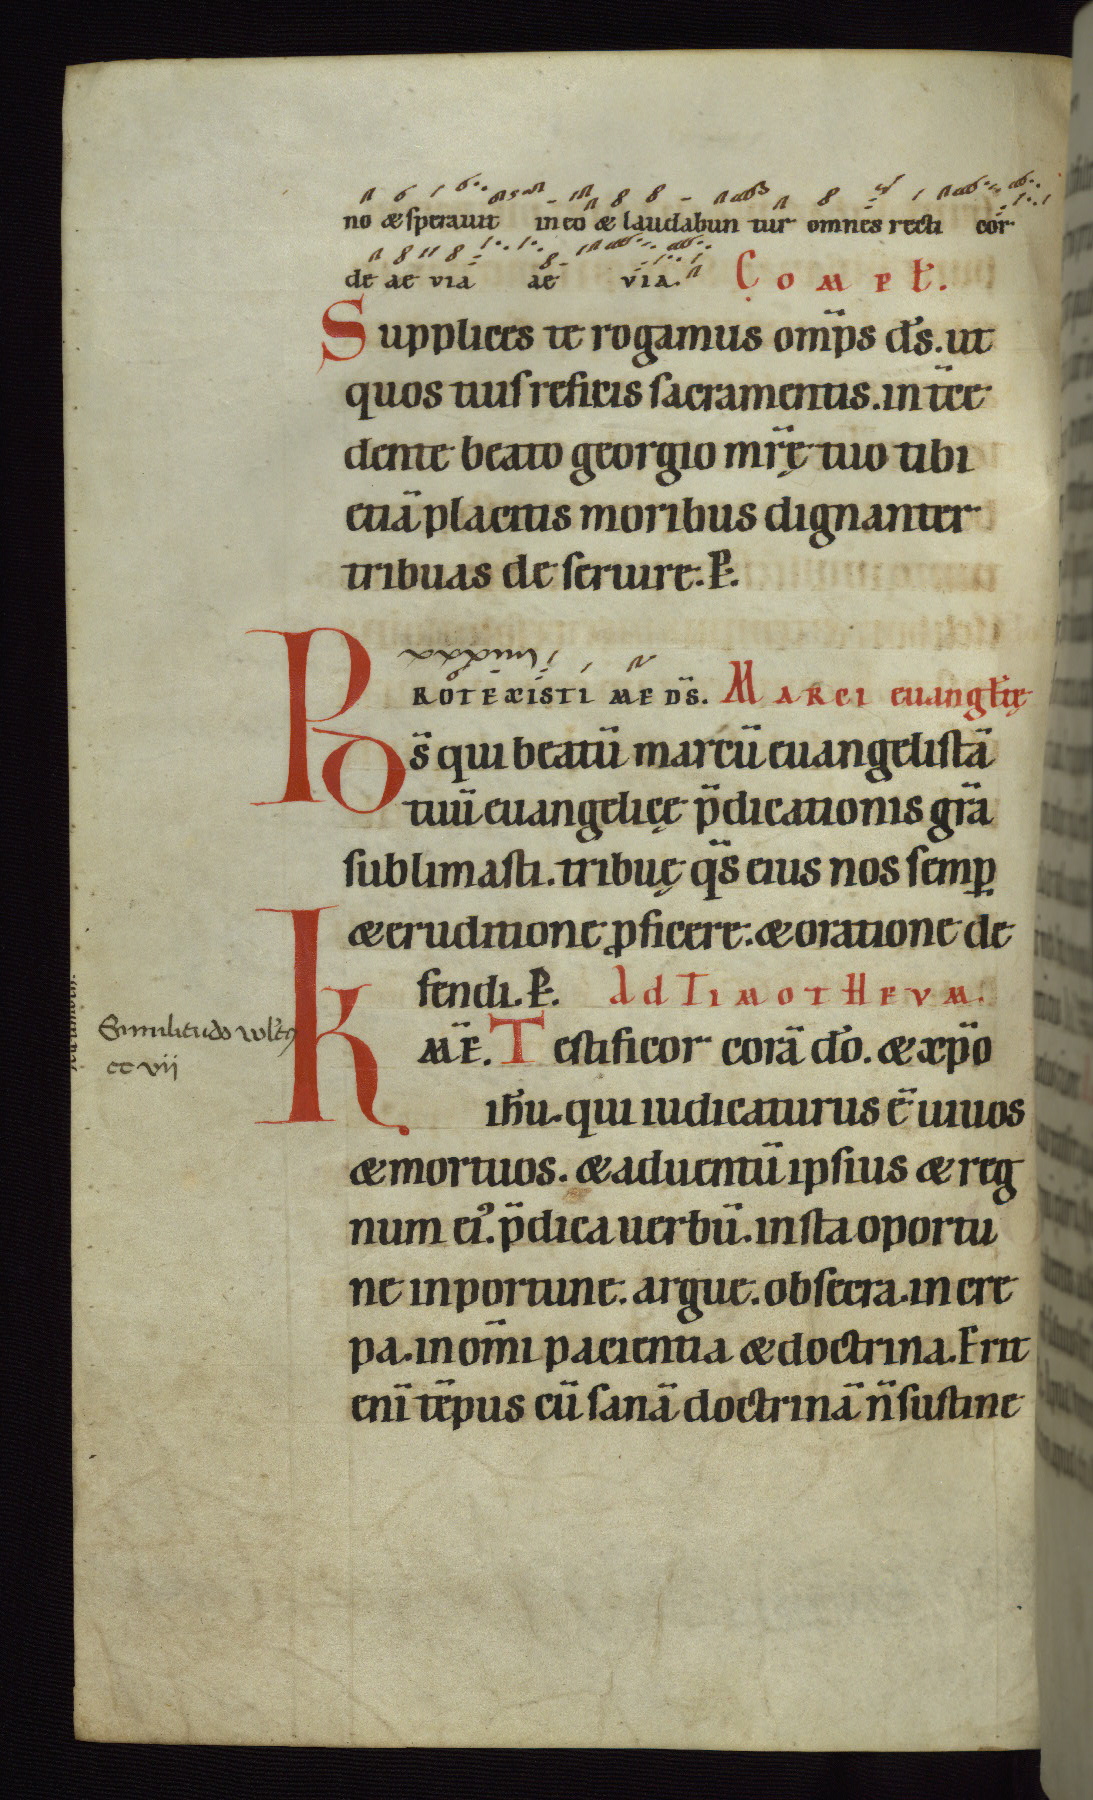 no & sperauit in eo & laudabun tur omnes recti cor
de ae via ae via. ComPꝉ.
Supplices te rogamus om̅ps d̅s. ut
quos tuis reficis sacramentis. int̅ce
dente beato georgio mr̅ę tuo tibi
etia̅ placitis moribus dignanter
tribuas deseruire. P̲.
ROTEXISTI ME DS̅. MARCI euangl̅ię
Ds̅ qui beatu̅ marcu̅ euangelista̅
tuu̅ euangelicę p̅dicationis gr̅a
sublimasti. tribuę qs̅ eius nos semꝑ
& eruditione ꝓficere. & oratione de
fendi. P̲. Ad TIMOTHEVM.
K ME̅. Testificor cora̅ do̅. & xp̅o
ih̅u. qui iudicaturus e̅ uiuos
& mortuos. & aduentu̅ ipsius & reg
num ei᾽. p̅dica uerbu̅. insta oportu
ne inportune. argue. obsecra. incre
pa. in om̅i pacientia & doctrina. Erit
eni̅ te̅pus cu̅ sana̅ doctrina̅ n̅ sustine
Similitudo
cc vij